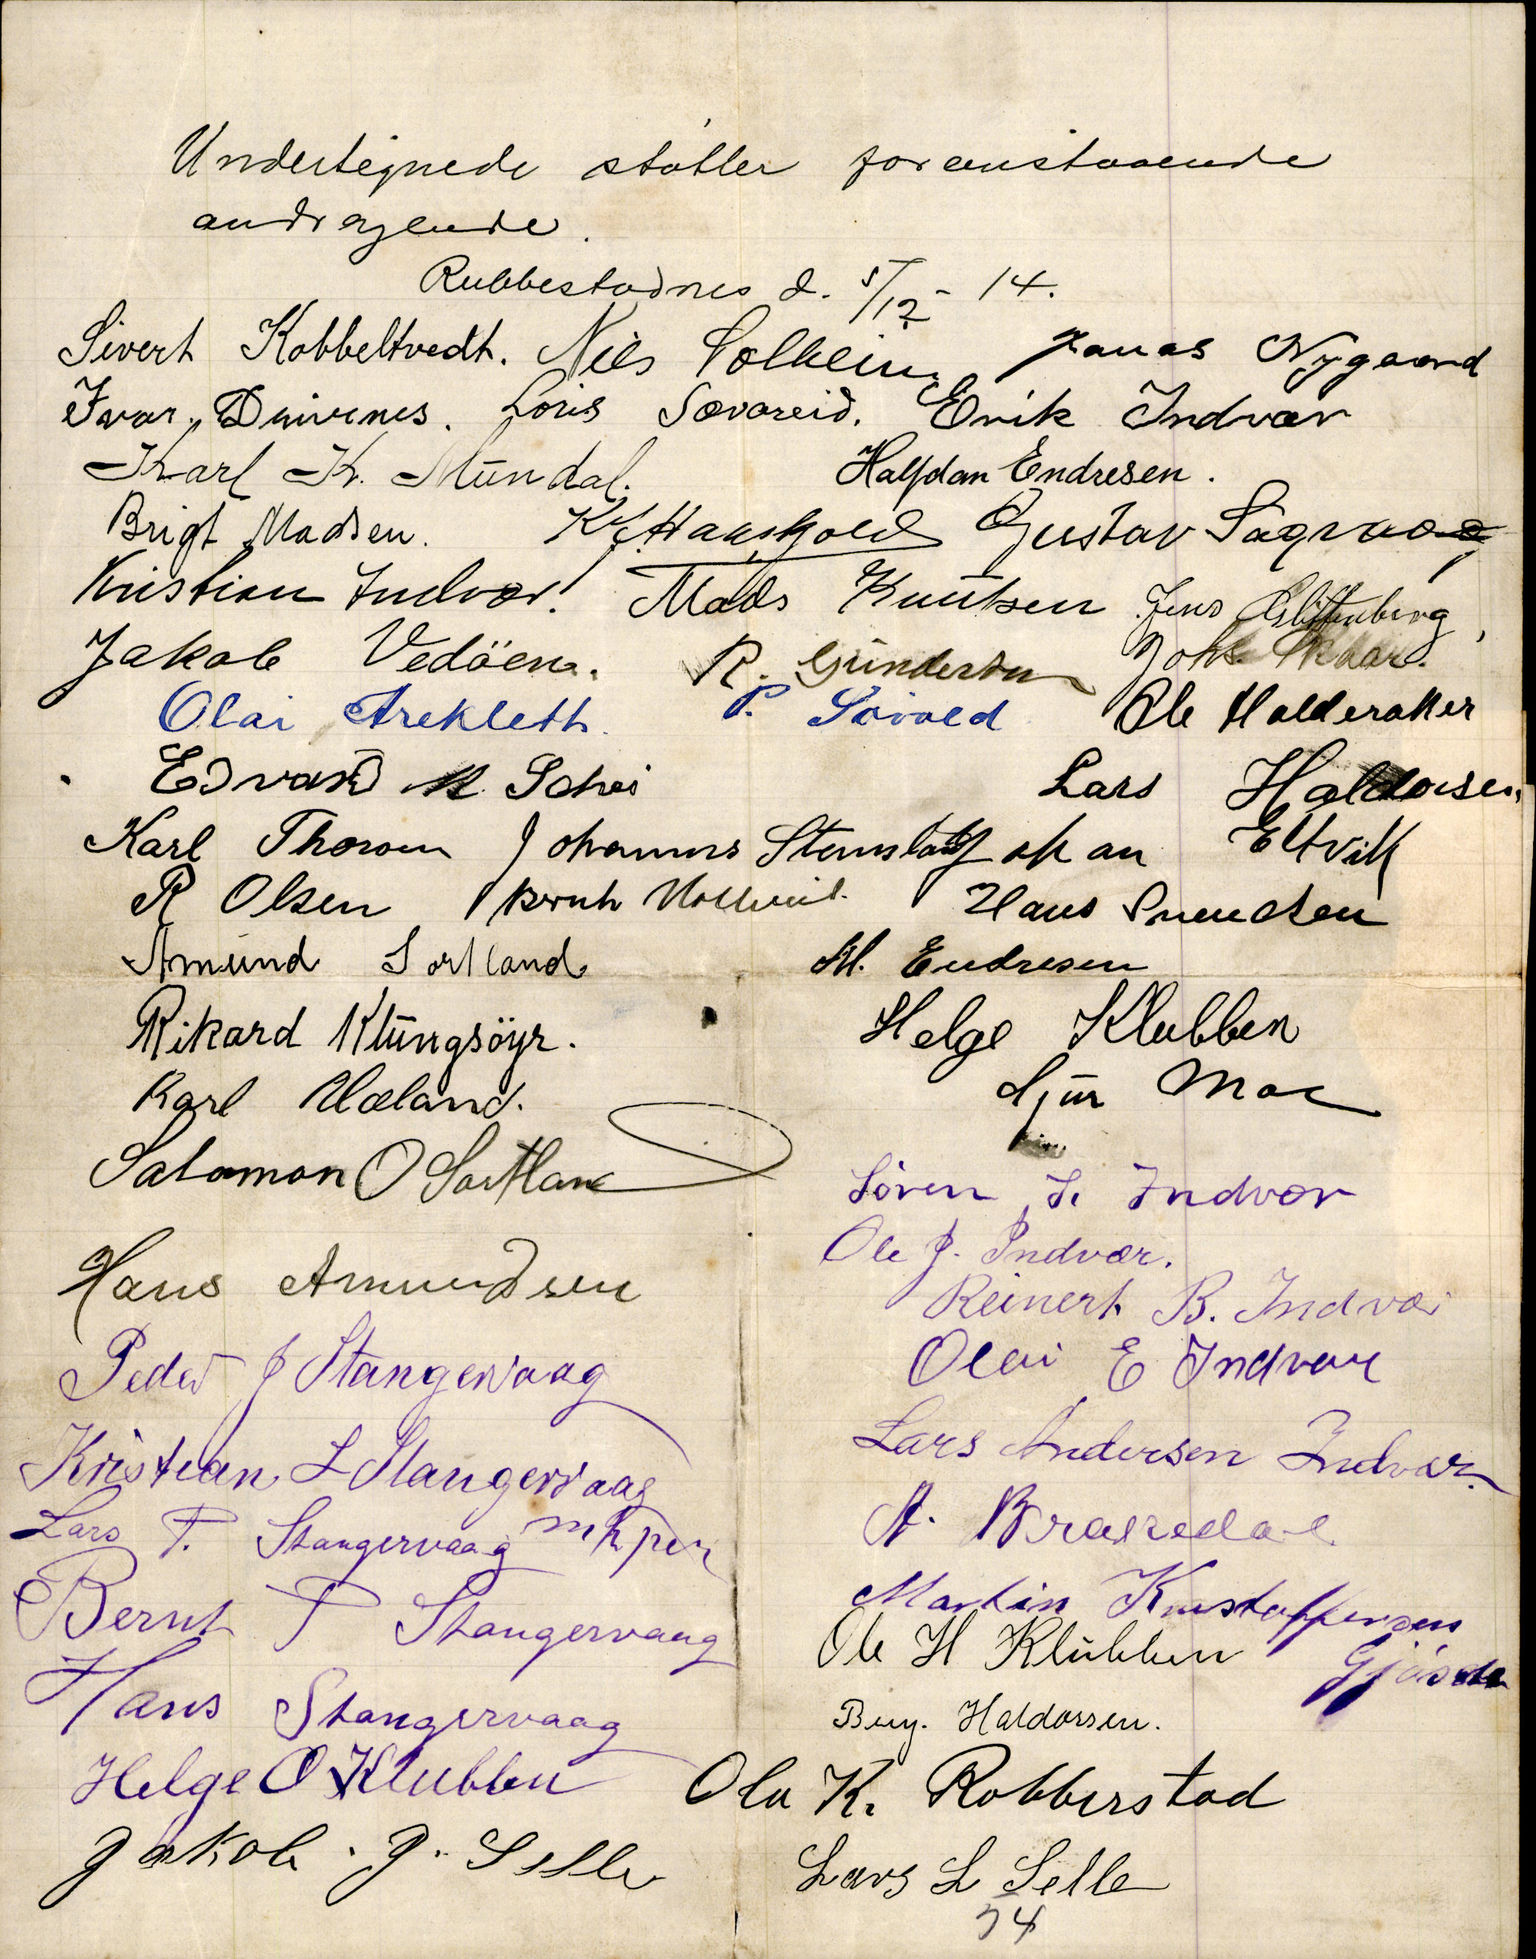 Undertegnede støtter foranstaaende
andragende.
Rubbestadnes d. 5/12 - 14.
Sivert Kobbeltvedt. Nils Solheim Jonas Nygaard
Ivar Duivenes. Loris Sævareid. Erik Indvær
Karl K. Mundal. Halfdan Endresen.
Brigt Madsen. K. J. Haaskjold Gustav Sagvaag
Kristian Indvær. Mads Knutsen Jens Glittenberg
Jakob Vedøen. R. Gundersen Johs. Skaar.
Olai Arekleth. P. Søvold Ole Halderaker
Edvard M. Schei Lars Haldorsen
Karl Thoresen Johannes Johan Eltvik
R Olsen Bernh Hans Svendsen
Amund Sortland M. Endresen
Rikard Klungsöyr. Helge Klubben
Karl Uleland. Sjur Moe
Salomon O Sortland Søren S. Indvær
Ole J. Indvær.
Hans Amundsen Reinert B. Indvær
Peder J Stangervaag Olai E Indvær
Kristian L Stangervaag Lars Andersen Indvær
Lars T. Stangervaag m. p. pen A. Brakedal
Bernt T Stangervaag Martin Kristoffersen Gjøsde
Ole H Klubben
Hans Stangervaag Beny. Haldorsen.
Helge O Klubben Ola K. Robberstad
Jakob. J. Selle Lars L Selle
54